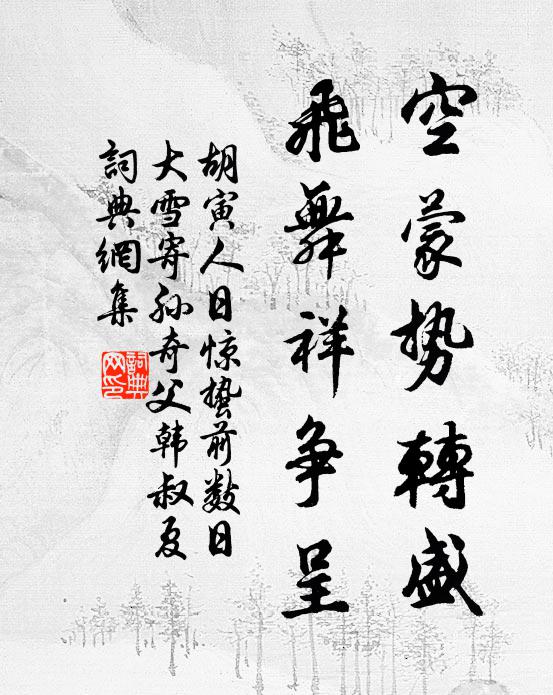 空蒙势轉盛
飛舞祥争呈
胡寅人日惊蛰前数日
大雪寄孙奇父韩叔夏
詞典網集
詞典
网印